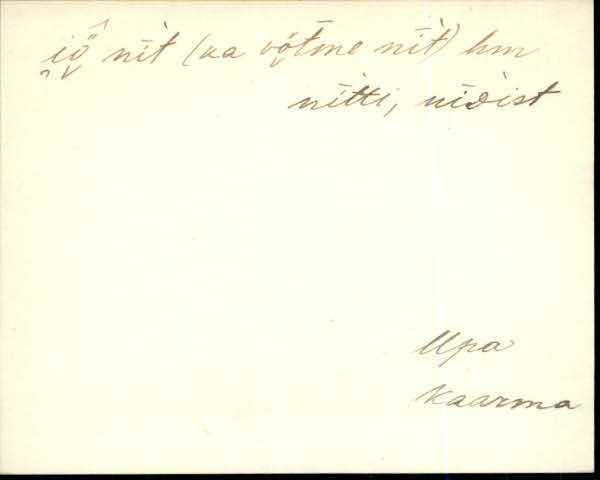 i̮ö̭ nīt (ka võtme nīt) hm
nītti, nīdist
Upa
Kaarma